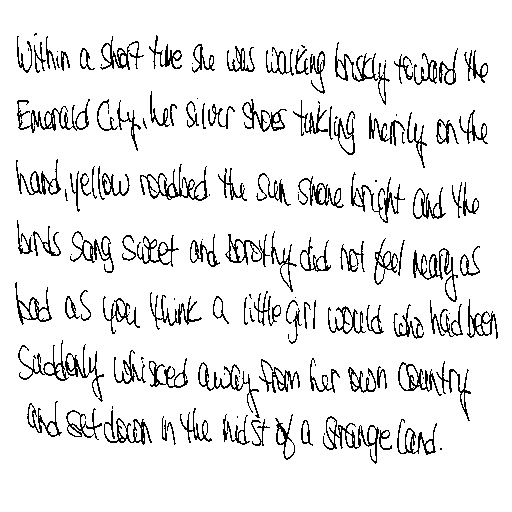 Within a short time she was walking briskly toward the
Emerald City, her silver shoes tinkling merrily on the
hard, yellow roadbed the sun shone bright and the
birds sang sweet and Dorothy did not feel nearly as
bad as you think a little girl would who had been
suddenly whisked away from her own country
and set down in the midst of a strange land.